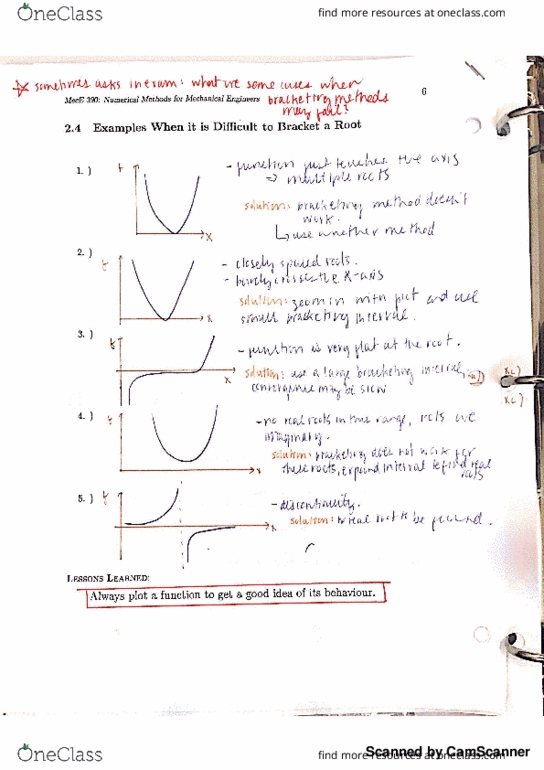 OneClass
find more resources at oneclass.com
sometimes asks in exam: what are some cases when
MecE 390: Numerical Methods for Mechanical Engineers bracketing methods
may fail?
6
2.4 Examples When it is Difficult to Bracket a Root
1.) f
- function just touches the axis
⇒ multiple roots
solution: bracketing method doesn't
work.
↳ use method
x
2.) f
- closely spaced roots.
- barely crosses the x-axis
solution: zoom in with plot and use
small bracketing interval.
x
3.) f
- function is very flat at the root.
solution: use a large bracketing interval,
convergence may be slow
x
4.) f
- no real roots in this range, roots are
imaginary.
solution: bracketing does not work for
these roots, expand interval to find real
roots
x
5.) f
- discontinuity.
solution: no real root to be found.
x
Lessons Learned:
Always plot a function to get a good idea of its behaviour.
OneClass
find more resources at oneclass.com
Scanned by CamScanner